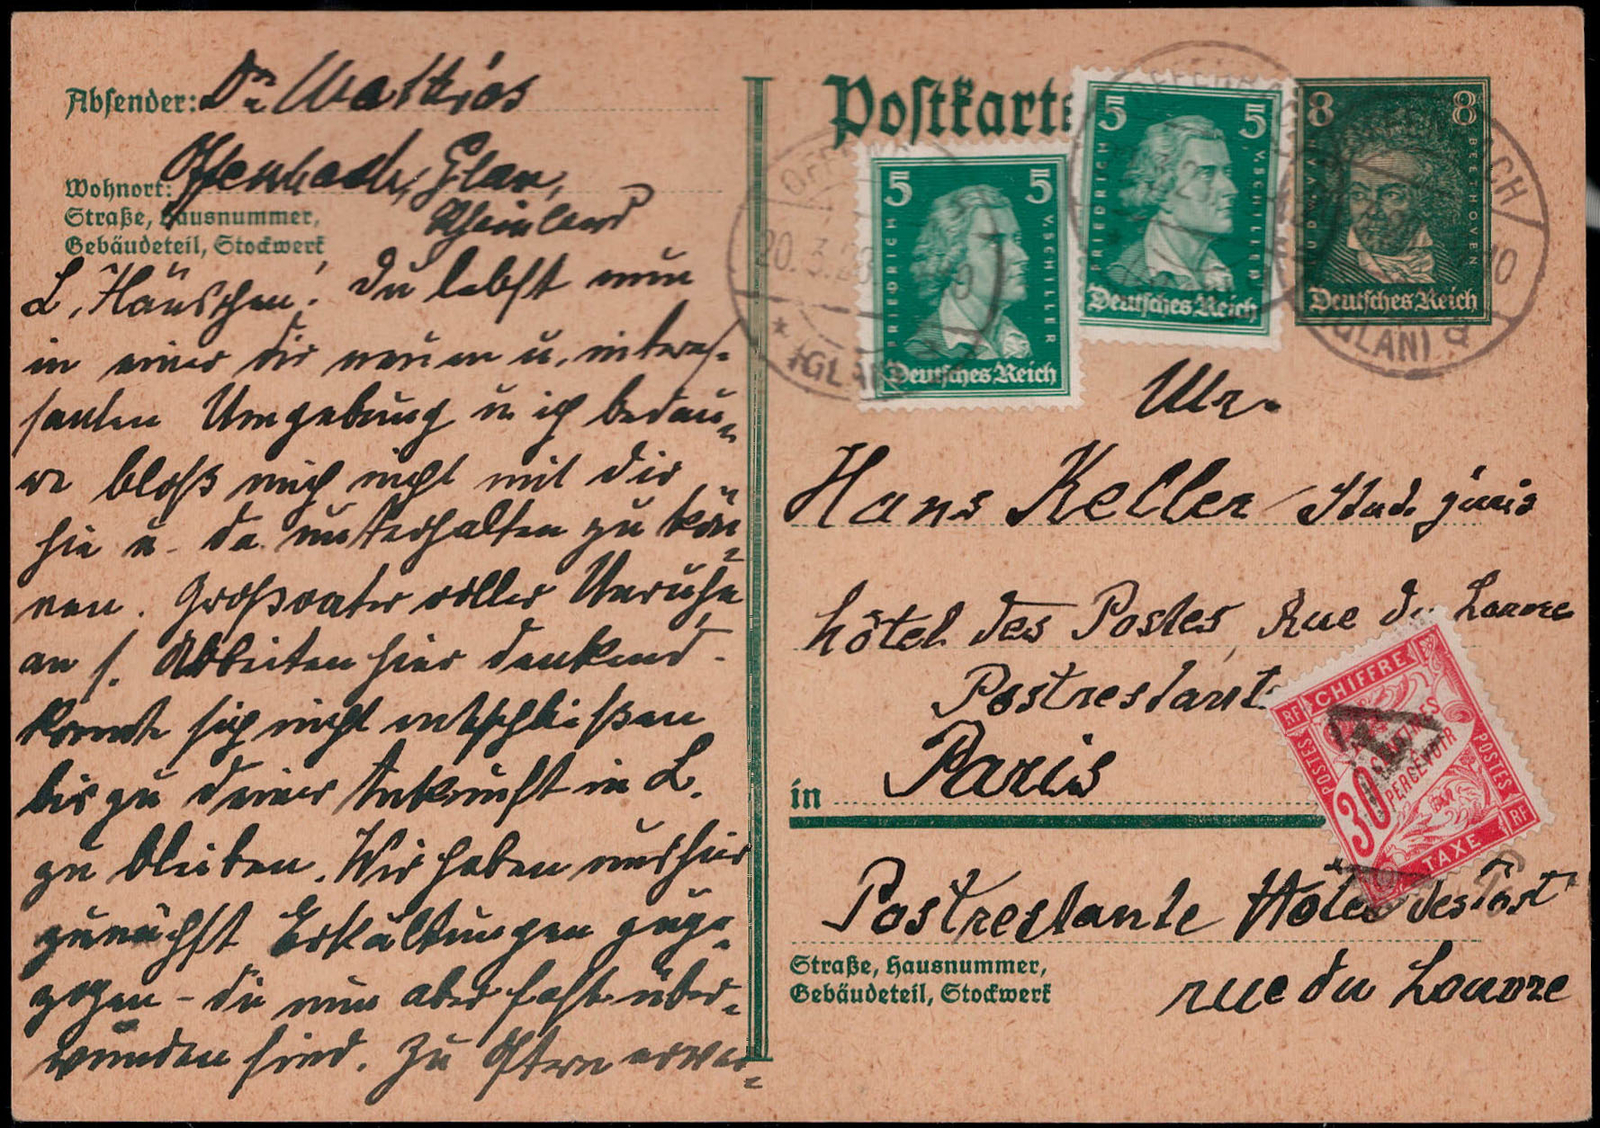 Absender: Dr Matthias
Offenbach, Glan,
Rheinland
Wohnort:
Straße, Hausnummer,
Gebäudeteil, Stockwerk
L. Hänschen! Du lebst nun
in einer dir neuen u. interes-
santen Umgebung u. ich bedau-
re bloß mich nicht mit dir
hie u. da unterhalten zu kön-
nen. Großvater voller Unruhe
an s. Arbeiten hier denkend
konnte sich nicht entschließen
bis zu deiner Ankunft in L.
zu bleiben. Wir haben uns hier
zunächst Erkältungen zuge-
zogen - die nun aber fast über-
wunden sind. Zu Ostern erwar-
Postkarte
5 5
FRIEDRICH V. SCHILLER
Deutsches Reich
5 5
FRIEDRICH V. SCHILLER
Deutsches Reich
8 8
LUDWIG VAN BEETHOVEN
Deutsches Reich
OFFENBACH
20.3.28
(GLAN)
(GLAN) a
Mr.
Hans Keller stud. juris
hôtel des Postes, Rue du Louvre
Postrestante
in Paris
Postrestante Hôtel des Post
rue du Louvre
Straße, Hausnummer,
Gebäudeteil, Stockwerk
RF CHIFFRE
POSTES POSTES
30 CENTIMES
A PERCEVOIR
TAXE RF